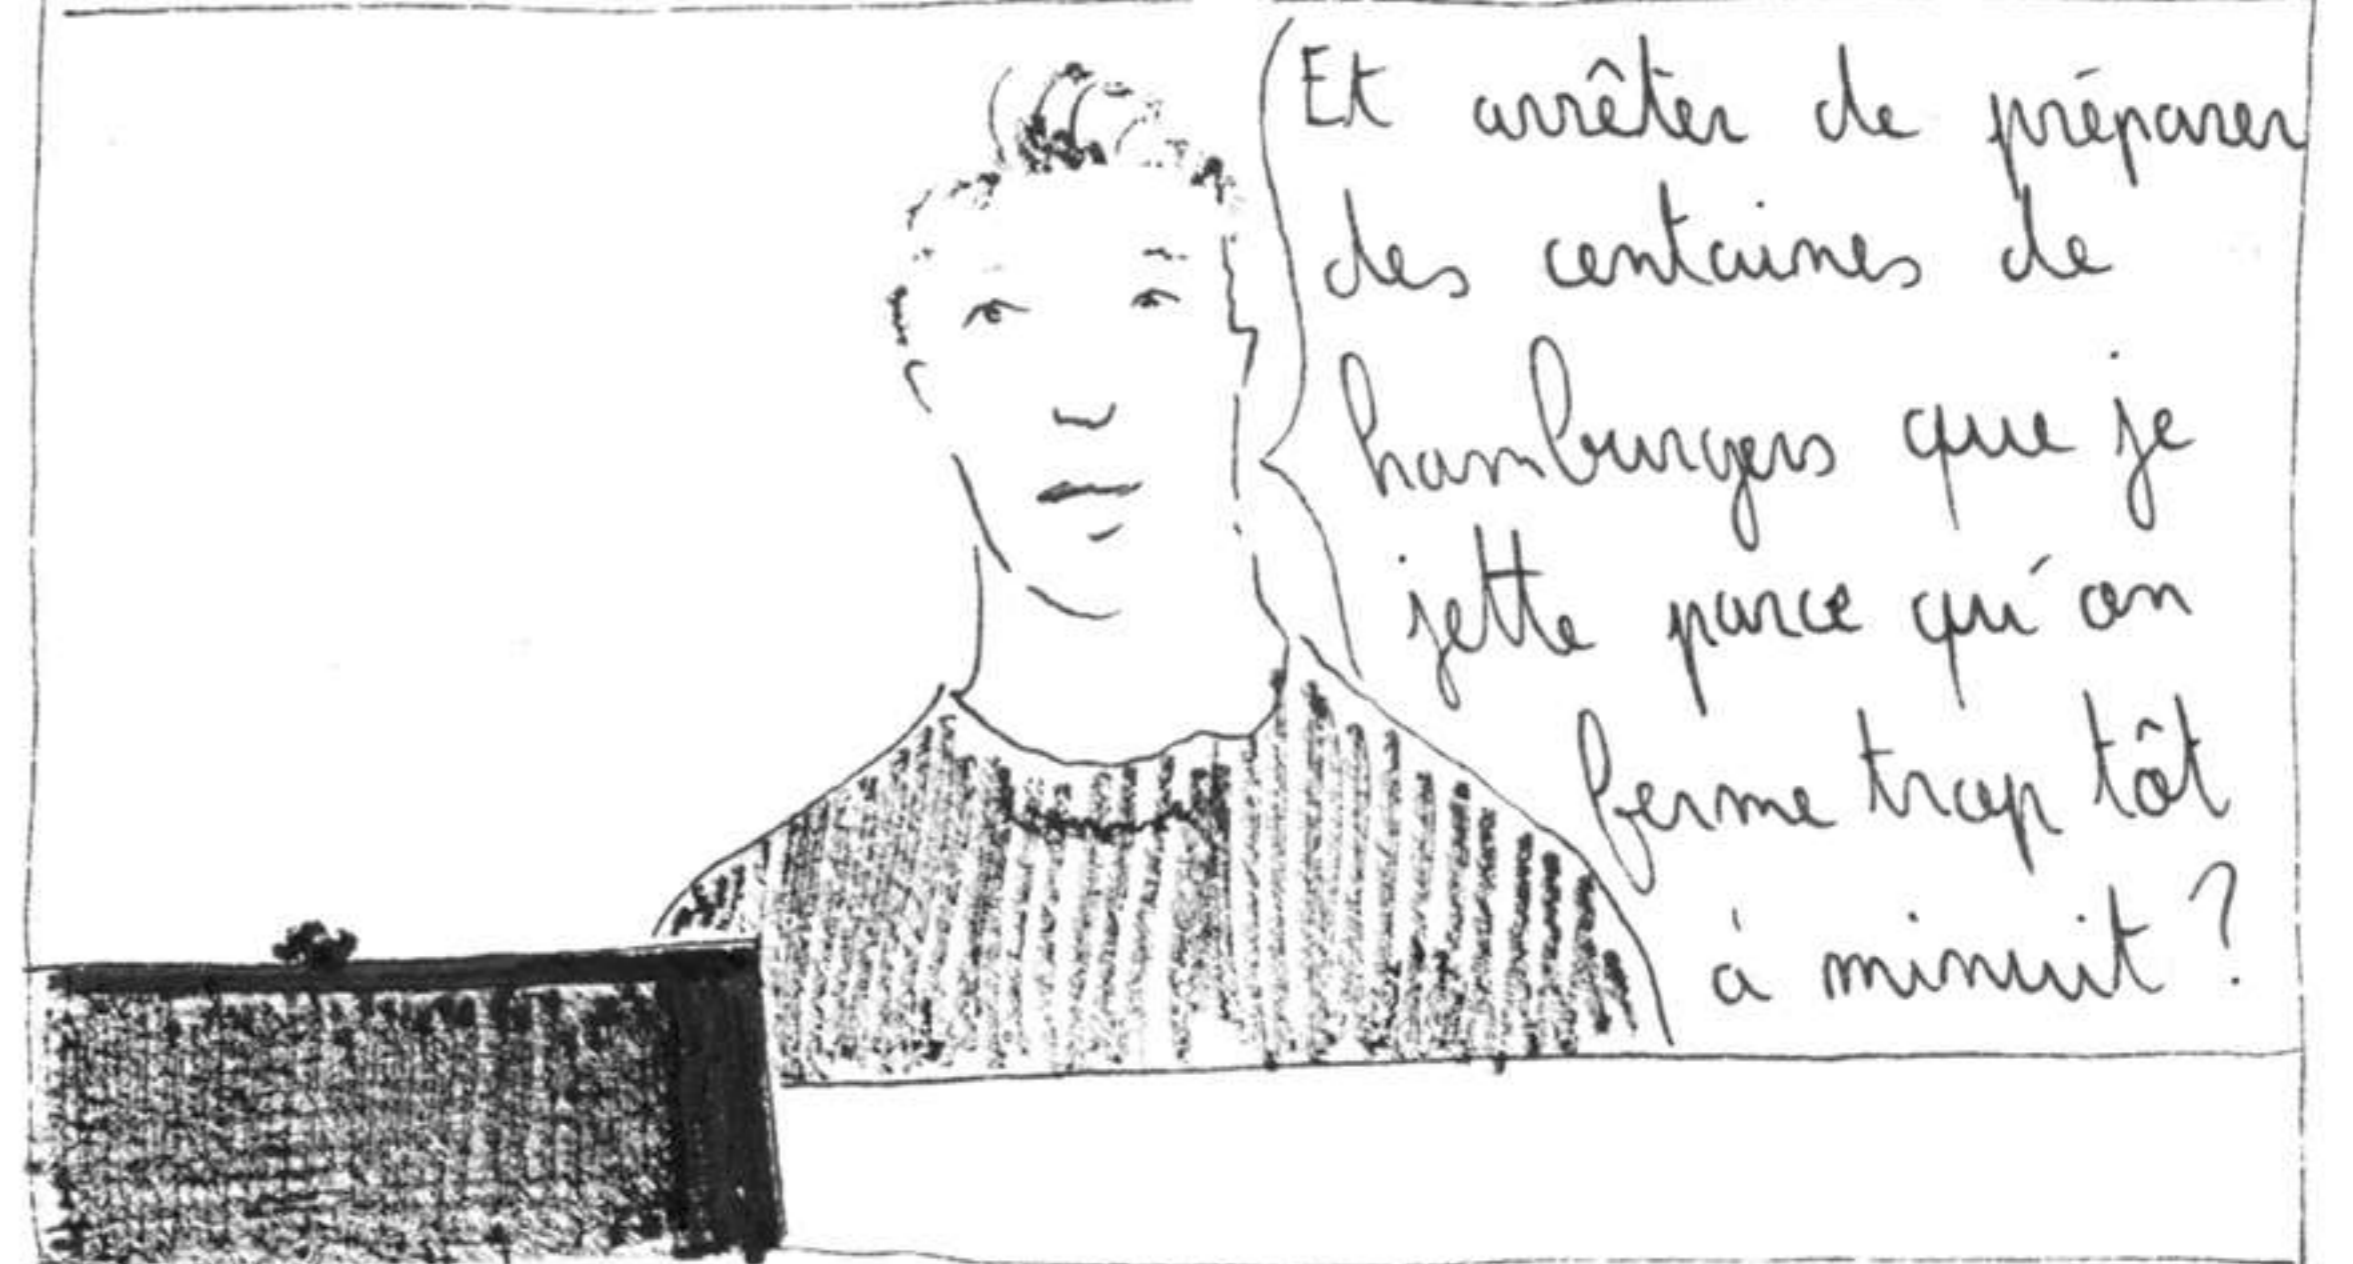 Et arrêter de préparer
des centaines de
hamburgers que je
jette parce qu'on
ferme trop tôt
à minuit ?